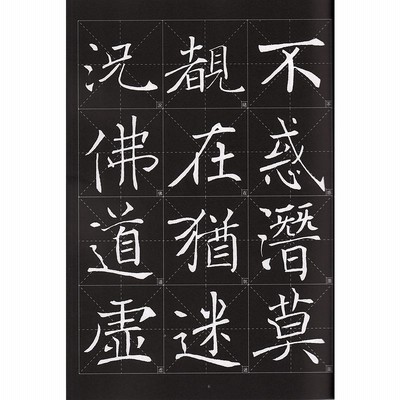 不惑潛莫
覩在猶迷
況佛道虛